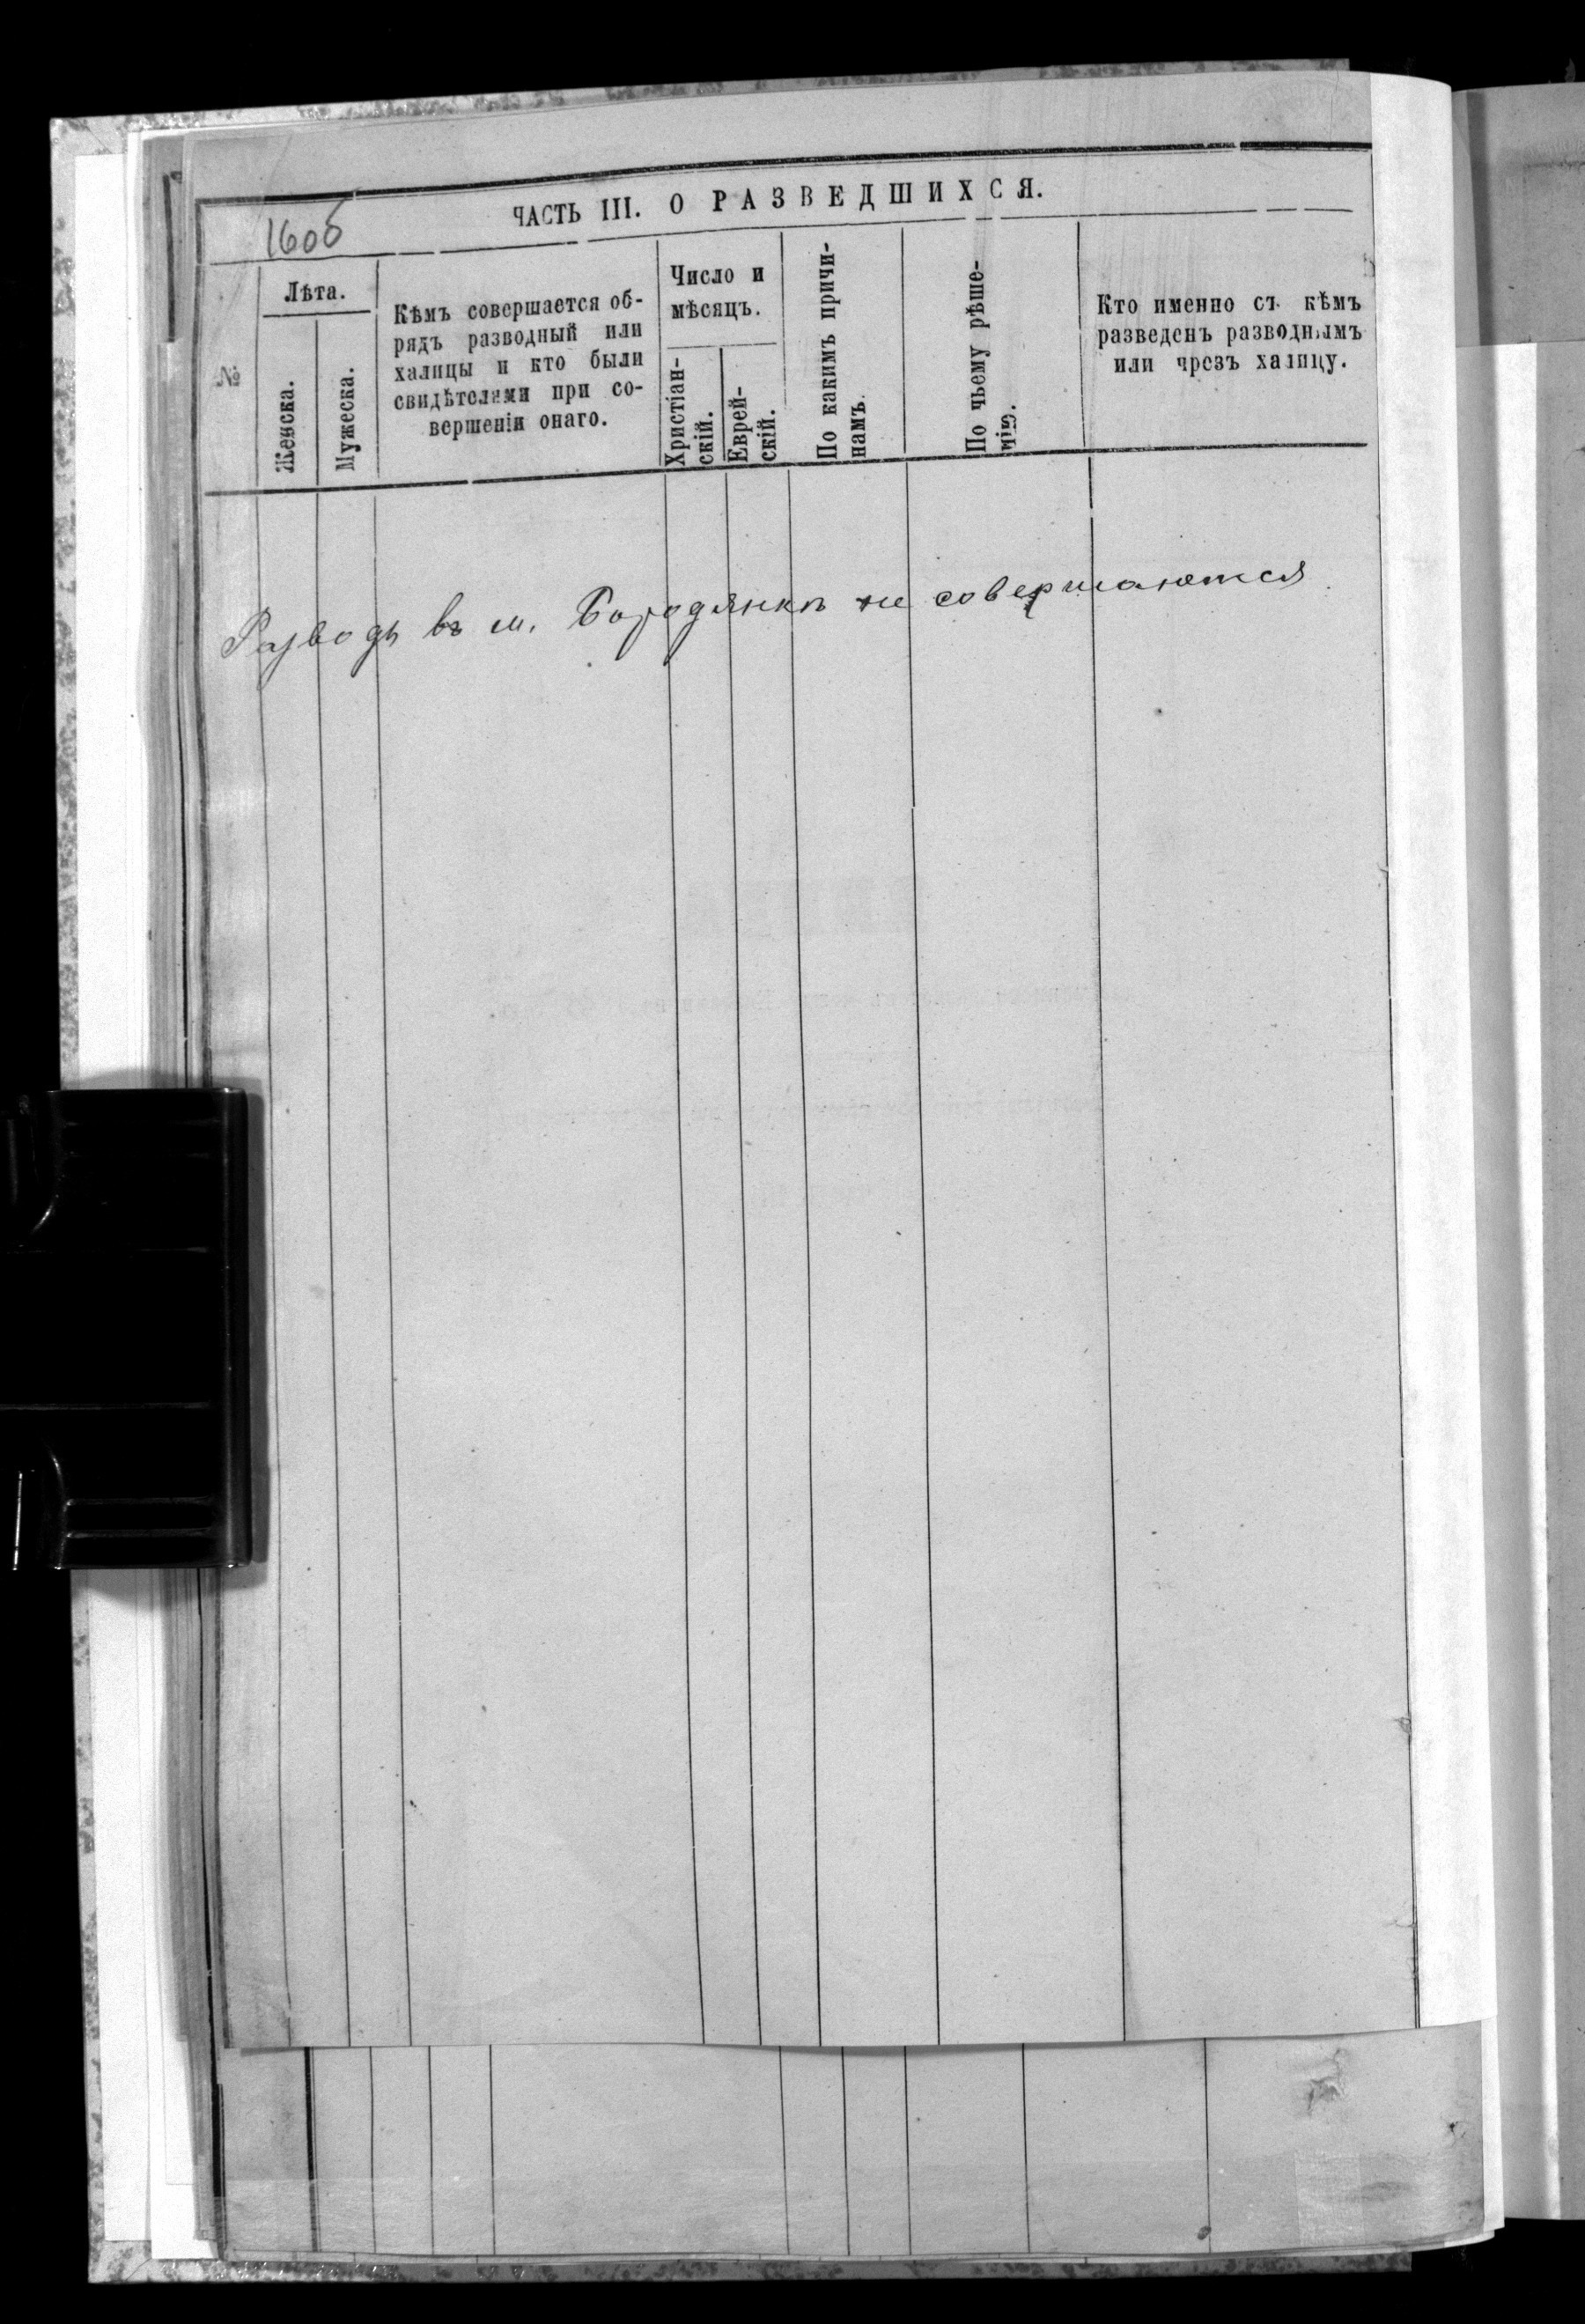 ЧАСТЬ III. О РАЗВЕДШИХСЯ.
160б
№
Лѣта.
Женска.
Мужеска.
Кѣмъ совершается об-
рядъ разводный или
халицы и кто были
свидѣтелями при со-
вершеніи онаго.
Число и
мѣсяцъ.
Христіан-
скій.
Еврей-
скій.
По какимъ причи-
намъ.
По чьему рѣше-
нію.
Кто именно съ кѣмъ
разведенъ разводнымъ
или чрезъ халицу.
Разводъ въ м. Бородянкѣ не совершаются